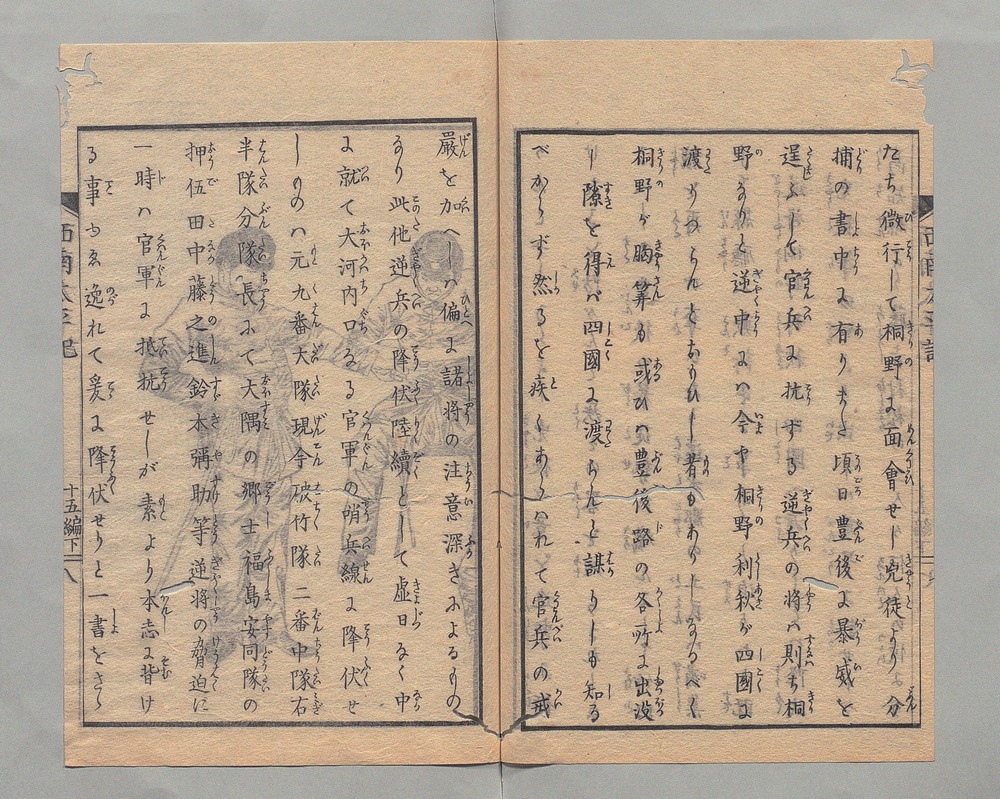 たち微行して桐野に面會せし兇徒よりは分
捕の書中に有りまた頃日豊後に暴威を
逞ふして官兵に抗する逆兵の将ハ則ち桐
野なりと逆中にハ今や桐野利秋が四國に
渡りならんとおもひし者もありしなるべく
桐野が胸算も或ひハ豊後路の各所に出没
し隙を得バ四國に渡らんと謀りしも知る
べからず然るを疾くあらハれて官兵の戒
嚴を加へしハ偏に諸将の注意深きによるもの
なり此他逆兵の降伏陸續として虚日なく中
に就て大河内口なる官軍の哨兵線に降伏せ
しものハ元九番大隊現今破竹隊二番中隊右
半隊分隊長にて大隅の郷士福島安同隊の
押伍田中藤之進鈴木彌助等逆将の脅迫に
一時ハ官軍に抵抗せしが素より本志に背け
る事ゆゑ逸れて爰に降伏せりと一書をさゝ
西南太平記
十五編下
八